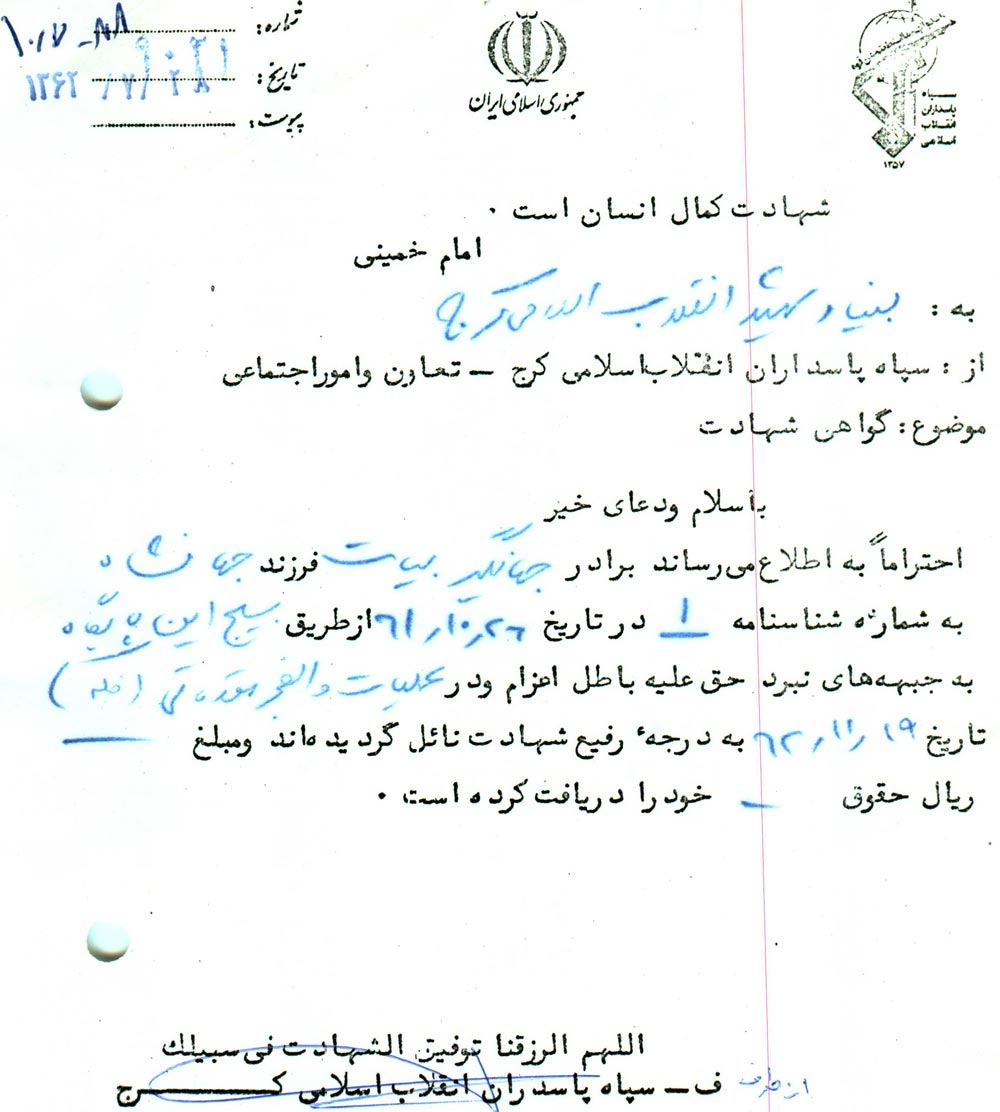 شماره: ۱۰۱۷-۸۸
تاریخ: ۱۳۶۲/۷/۲۸
پیوست:
جمهوری اسلامی ایران
سپاه
پاسداران
انقلاب
اسلامی
۱۳۵۷
شهادت کمال انسان است .
امام خمینی
به : بنیاد شهید انقلاب اسلامی کرج
از : سپاه پاسداران انقلاب اسلامی کرج – تعاون وامور اجتماعی
موضوع : گواهی شهادت
باسلام ودعای خیر
احتراماً به اطلاع می‌رساند برادر جهانگیر بیات فرزند جهانشاه
به شماره شناسنامه ۱ در تاریخ ۶۱/۱۰/۲۶ ازطریق بسیج این پایگاه
به جبهه‌های نبرد حق علیه باطل اعزام ودر عملیات والفجر مقدماتی (فکه)
تاریخ ۶۲/۱۱/۱۹ به درجهٔ رفیع شهادت نائل گردیده‌اند ومبلغ ــ
ریال حقوق ــ خود را دریافت کرده است .
اللهم الرزقنا توفیق الشهادت فی سبیلك
از طرف ف – سپاه پاسدران انقلاب اسلامی کــرج